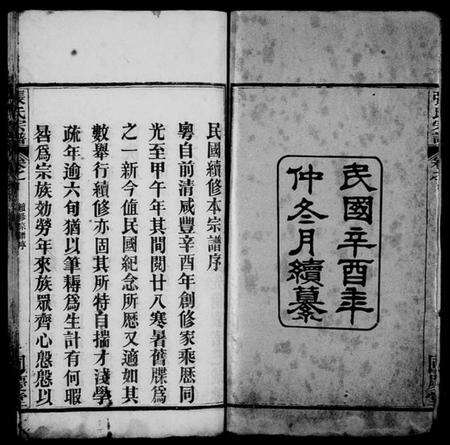 張氏宗譜
民國辛酉年
仲冬月續纂
民國續修本宗譜序
粵自前清咸豐辛酉年創修家乘歷同
光至甲午年其間閱廿八寒暑舊牒爲
之一新今值民國紀念所歷又適如其
數舉行續修亦固其所特自揣才淺學
疏年逾六旬猶以筆耨爲生計有何暇
晷爲宗族効勞年來族眾齊心慇慇以
張氏宗譜